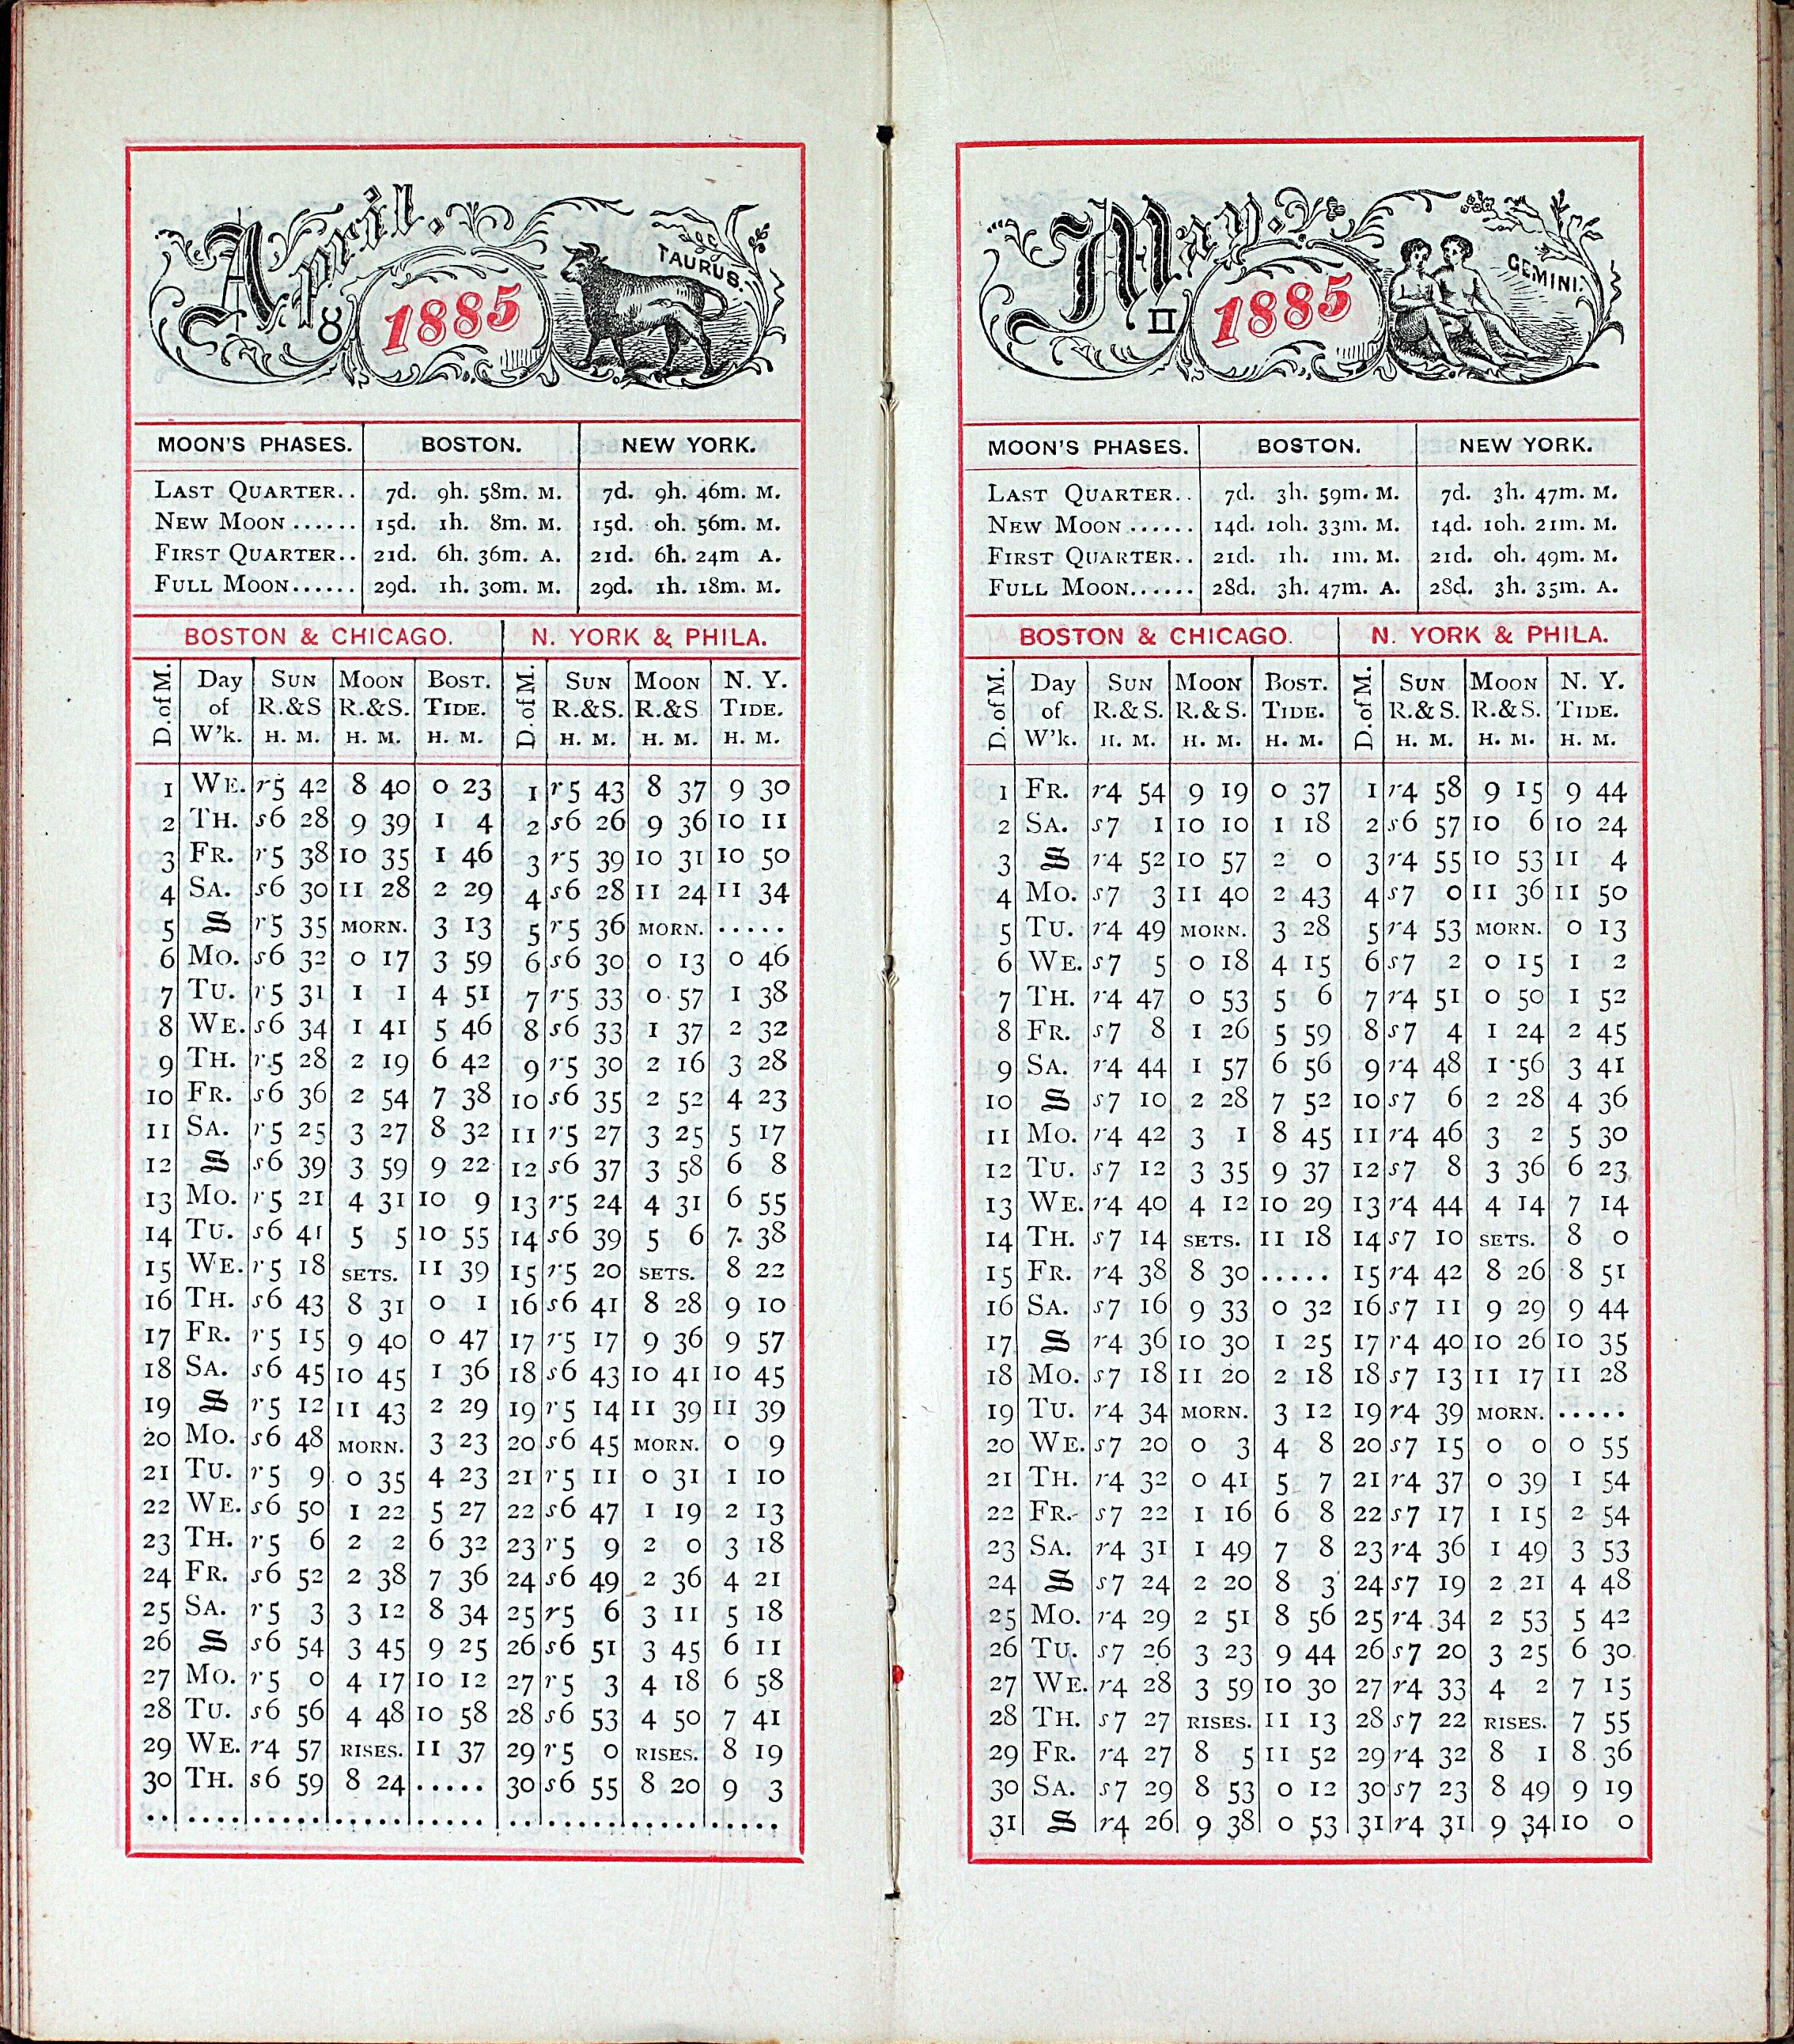 April.
TAURUS.
♉
1885
MOON'S PHASES. BOSTON. NEW YORK.
LAST QUARTER.. 7d. 9h. 58m. M. 7d. 9h. 46m. M.
NEW MOON...... 15d. 1h. 8m. M. 15d. 0h. 56m. M.
FIRST QUARTER.. 21d. 6h. 36m. A. 21d. 6h. 24m A.
FULL MOON...... 29d. 1h. 30m. M. 29d. 1h. 18m. M.
BOSTON & CHICAGO. N. YORK & PHILA.
D. of M. Day SUN MOON BOST. D. of M. SUN MOON N. Y.
of R.&S R.&S. TIDE. R.&S. R.&S TIDE.
W'k. H. M. H. M. H. M. H. M. H. M. H. M.
1 WE. r5 42 8 40 0 23 1 r5 43 8 37 9 30
2 TH. s6 28 9 39 1 4 2 s6 26 9 36 10 11
3 FR. r5 38 10 35 1 46 3 r5 39 10 31 10 50
4 SA. s6 30 11 28 2 29 4 s6 28 11 24 11 34
5 S r5 35 MORN. 3 13 5 r5 36 MORN. .....
6 MO. s6 32 0 17 3 59 6 s6 30 0 13 0 46
7 TU. r5 31 1 1 4 51 7 r5 33 0 57 1 38
8 WE. s6 34 1 41 5 46 8 s6 33 1 37 2 32
9 TH. r5 28 2 19 6 42 9 r5 30 2 16 3 28
10 FR. s6 36 2 54 7 38 10 s6 35 2 52 4 23
11 SA. r5 25 3 27 8 32 11 r5 27 3 25 5 17
12 S s6 39 3 59 9 22 12 s6 37 3 58 6 8
13 MO. r5 21 4 31 10 9 13 r5 24 4 31 6 55
14 TU. s6 41 5 5 10 55 14 s6 39 5 6 7 38
15 WE. r5 18 SETS. 11 39 15 r5 20 SETS. 8 22
16 TH. s6 43 8 31 0 1 16 s6 41 8 28 9 10
17 FR. r5 15 9 40 0 47 17 r5 17 9 36 9 57
18 SA. s6 45 10 45 1 36 18 s6 43 10 41 10 45
19 S r5 12 11 43 2 29 19 r5 14 11 39 11 39
20 MO. s6 48 MORN. 3 23 20 s6 45 MORN. 0 9
21 TU. r5 9 0 35 4 23 21 r5 11 0 31 1 10
22 WE. s6 50 1 22 5 27 22 s6 47 1 19 2 13
23 TH. r5 6 2 2 6 32 23 r5 9 2 0 3 18
24 FR. s6 52 2 38 7 36 24 s6 49 2 36 4 21
25 SA. r5 3 3 12 8 34 25 r5 6 3 11 5 18
26 S s6 54 3 45 9 25 26 s6 51 3 45 6 11
27 MO. r5 0 4 17 10 12 27 r5 3 4 18 6 58
28 TU. s6 56 4 48 10 58 28 s6 53 4 50 7 41
29 WE. r4 57 RISES. 11 37 29 r5 0 RISES. 8 19
30 TH. s6 59 8 24 ..... 30 s6 55 8 20 9 3
May.
GEMINI.
♊
1885
MOON'S PHASES. BOSTON. NEW YORK.
LAST QUARTER.. 7d. 3h. 59m. M. 7d. 3h. 47m. M.
NEW MOON...... 14d. 10h. 33m. M. 14d. 10h. 21m. M.
FIRST QUARTER.. 21d. 1h. 1m. M. 21d. 0h. 49m. M.
FULL MOON...... 28d. 3h. 47m. A. 28d. 3h. 35m. A.
BOSTON & CHICAGO. N. YORK & PHILA.
D. of M. Day SUN MOON BOST. D. of M. SUN MOON N. Y.
of R.&S. R.&S. TIDE. R.&S. R.&S. TIDE.
W'k. H. M. H. M. H. M. H. M. H. M. H. M.
1 FR. r4 54 9 19 0 37 1 r4 58 9 15 9 44
2 SA. s7 1 10 10 1 18 2 s6 57 10 6 10 24
3 S r4 52 10 57 2 0 3 r4 55 10 53 11 4
4 MO. s7 3 11 40 2 43 4 s7 0 11 36 11 50
5 TU. r4 49 MORN. 3 28 5 r4 53 MORN. 0 13
6 WE. s7 5 0 18 4 15 6 s7 2 0 15 1 2
7 TH. r4 47 0 53 5 6 7 r4 51 0 50 1 52
8 FR. s7 8 1 26 5 59 8 s7 4 1 24 2 45
9 SA. r4 44 1 57 6 56 9 r4 48 1 56 3 41
10 S s7 10 2 28 7 52 10 s7 6 2 28 4 36
11 MO. r4 42 3 1 8 45 11 r4 46 3 2 5 30
12 TU. s7 12 3 35 9 37 12 s7 8 3 36 6 23
13 WE. r4 40 4 12 10 29 13 r4 44 4 14 7 14
14 TH. s7 14 SETS. 11 18 14 s7 10 SETS. 8 0
15 FR. r4 38 8 30 ..... 15 r4 42 8 26 8 51
16 SA. s7 16 9 33 0 32 16 s7 11 9 29 9 44
17 S r4 36 10 30 1 25 17 r4 40 10 26 10 35
18 MO. s7 18 11 20 2 18 18 s7 13 11 17 11 28
19 TU. r4 34 MORN. 3 12 19 r4 39 MORN. .....
20 WE. s7 20 0 3 4 8 20 s7 15 0 0 0 55
21 TH. r4 32 0 41 5 7 21 r4 37 0 39 1 54
22 FR. s7 22 1 16 6 8 22 s7 17 1 15 2 54
23 SA. r4 31 1 49 7 8 23 r4 36 1 49 3 53
24 S s7 24 2 20 8 3 24 s7 19 2 21 4 48
25 MO. r4 29 2 51 8 56 25 r4 34 2 53 5 42
26 TU. s7 26 3 23 9 44 26 s7 20 3 25 6 30
27 WE. r4 28 3 59 10 30 27 r4 33 4 2 7 15
28 TH. s7 27 RISES. 11 13 28 s7 22 RISES. 7 55
29 FR. r4 27 8 5 11 52 29 r4 32 8 1 8 36
30 SA. s7 29 8 53 0 12 30 s7 23 8 49 9 19
31 S r4 26 9 38 0 53 31 r4 31 9 34 10 0